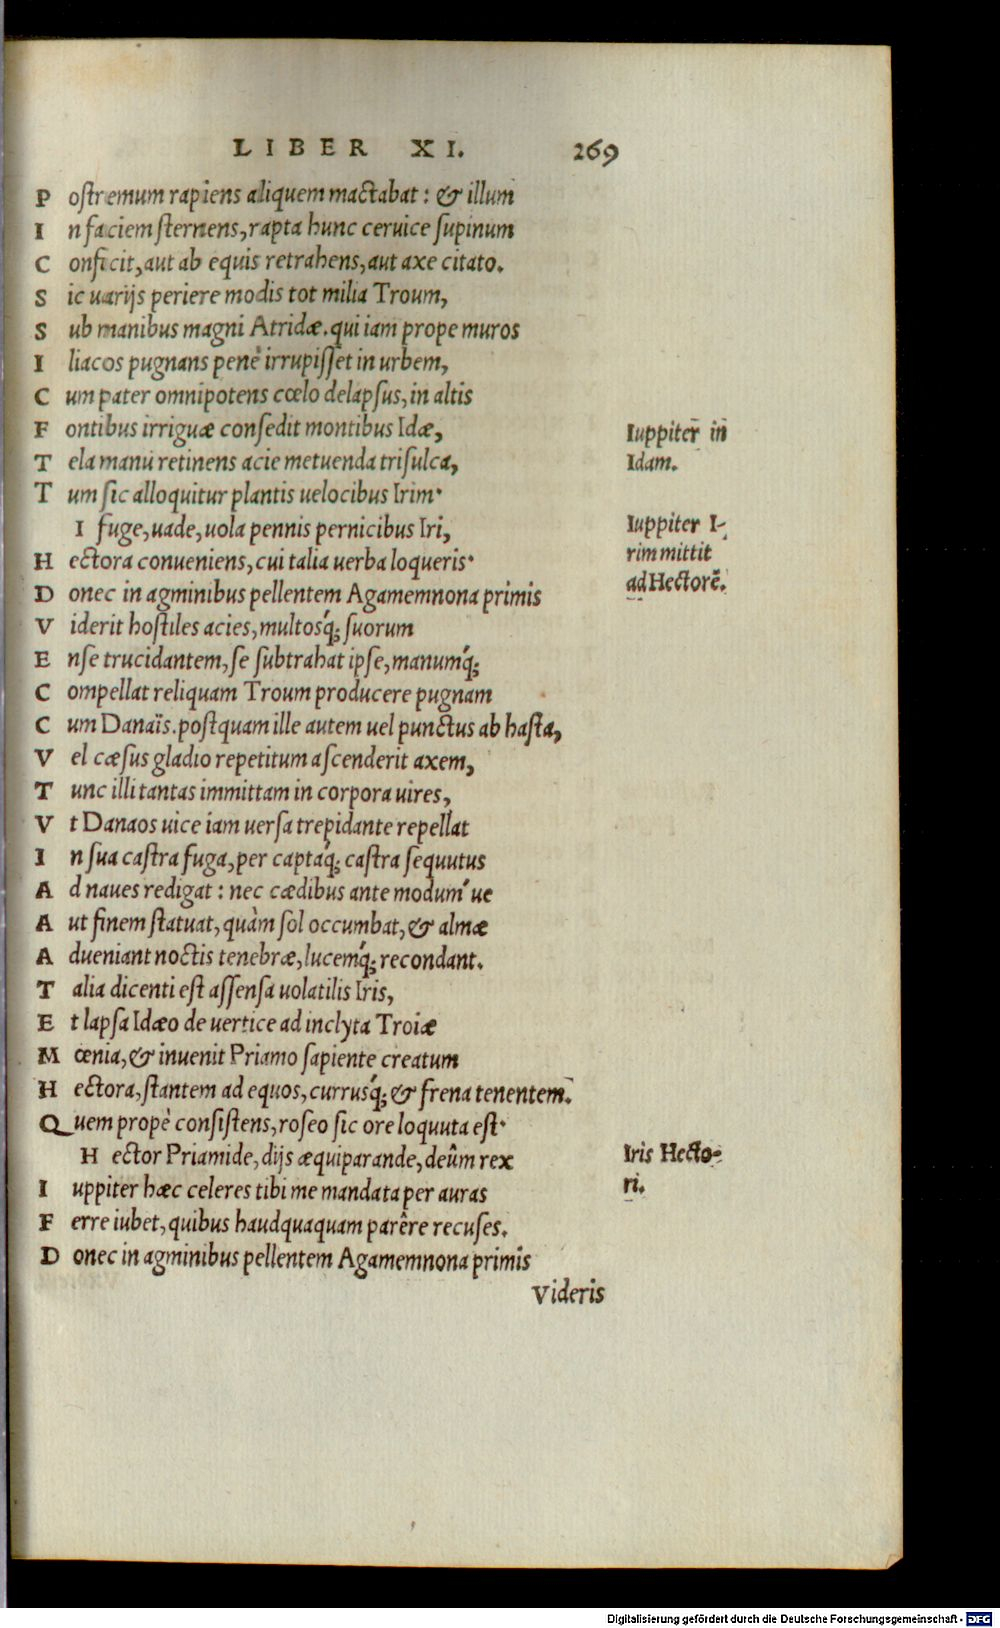 LIBER XI. 269
Postremum rapiens aliquem mactabat: & illum
In faciem sternens, rapta hunc ceruice supinum
Conficit, aut ab equis retrahens, aut axe citato.
Sic uarijs periere modis tot milia Troum,
Sub manibus magni Atridæ. qui iam prope muros
Iliacos pugnans penè irrupisset in urbem,
Cum pater omnipotens cœlo delapsus, in altis
Fontibus irriguæ consedit montibus Idæ,
Iuppiter in
Idam.
Tela manu retinens acie metuenda trisulca,
Tum sic alloquitur plantis uelocibus Irim.
I fuge, uade, uola pennis pernicibus Iri,
Iuppiter I-
rim mittit
ad Hectorē.
Hectora conueniens, cui talia uerba loqueris.
Donec in agminibus pellentem Agamemnona primis
Viderit hostiles acies, multosq́; suorum
Ense trucidantem, se subtrahat ipse, manumq́;
Compellat reliquam Troum producere pugnam
Cum Danaïs. postquam ille autem uel punctus ab hasta,
Vel cæsus gladio repetitum ascenderit axem,
Tunc illi tantas immittam in corpora uires,
Vt Danaos uice iam uersa trepidante repellat
In sua castra fuga, per captaq́; castra sequutus
Ad naues redigat: nec cædibus ante modum´ue
Aut finem statuat, quàm sol occumbat, & almæ
Adueniant noctis tenebræ, lucemq́; recondant.
Talia dicenti est assensa uolatilis Iris,
Et lapsa Idæo de uertice ad inclyta Troiæ
Mœnia, & inuenit Priamo sapiente creatum
Hectora, stantem ad equos, currusq́; & frena tenentem.
Quem propè consistens, roseo sic ore loquuta est.
Hector Priamide, dijs æquiparande, deûm rex
Iris Hecto-
ri.
Iuppiter hæc celeres tibi me mandata per auras
Ferre iubet, quibus haudquaquam parêre recuses.
Donec in agminibus pellentem Agamemnona primis
Videris
Digitalisierung gefördert durch die Deutsche Forschungsgemeinschaft - DFG